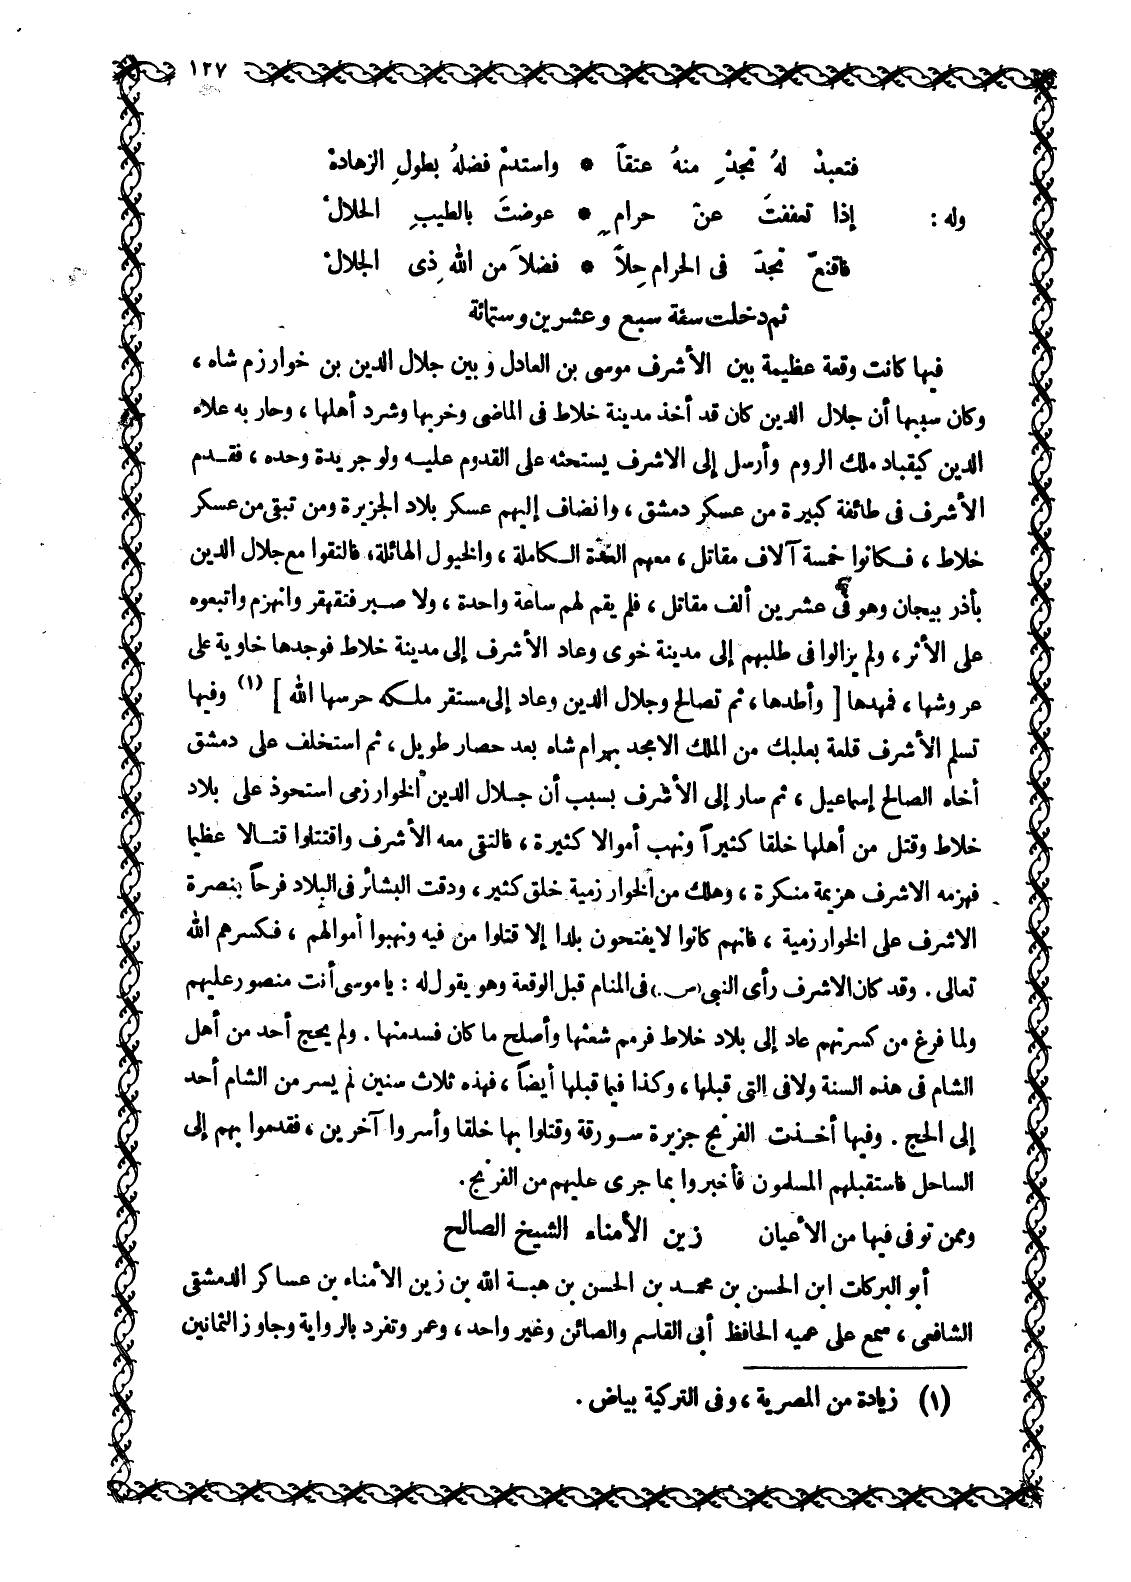 ١٢٧
فتعبدْ لهُ تجدْ منهُ عتقاً * واستدمْ فضلهُ بطولِ الزهادهْ
وله : إذا تعففتَ عنْ حرامٍ * عوضتَ بالطيبِ الحلالْ
فاقنعْ تجدْ فى الحرام حِلاً * فضلاً من اللهِ ذى الجلالْ
ثم دخلت سنة سبع وعشرين وستمائة
فيها كانت وقعة عظيمة بين الأشرف موسى بن العادل وبين جلال الدين بن خوارزم شاه ،
وكان سببها أن جلال الدين كان قد أخذ مدينة خلاط فى الماضى وخربها وشرد أهلها ، وحاربه علاء
الدين كيقباد ملك الروم وأرسل إلى الاشرف يستحثه على القدوم عليه ولو جريدة وحده ، فقدم
الأشرف فى طائفة كبيرة من عسكر دمشق ، وانضاف إليهم عسكر بلاد الجزيرة ومن تبقى من عسكر
خلاط ، فكانوا خمسة آلاف مقاتل ، معهم العدة الكاملة ، والخيول الهائلة، فالتقوا مع جلال الدين
بأذربيجان وهو فى عشرين ألف مقاتل ، فلم يقم لهم ساعة واحدة ، ولا صبر فتقهقر وانهزم واتبعوه
على الأثر ، ولم يزالوا فى طلبهم إلى مدينة خوى وعاد الأشرف إلى مدينة خلاط فوجدها خاوية على
عروشها ، فمهدها [ وأطدها ، ثم تصالح وجلال الدين وعاد إلى مستقر ملكه حرسها الله ] (١) وفيها
تسلم الأشرف قلعة بعلبك من الملك الامجد بهرام شاه بعد حصار طويل ، ثم استخلف على دمشق
أخاه الصالح إسماعيل ، ثم سار إلى الأشرف بسبب أن جلال الدين الخوارزمى استحوذ على بلاد
خلاط وقتل من أهلها خلقا كثيراً ونهب أموالا كثيرة ، فالتقى معه الأشرف واقتتلوا قتالا عظيما
فهزمه الاشرف هزيمة منكرة ، وهلك من الخوارزمية خلق كثير ، ودقت البشائر فى البلاد فرحاً بنصرة
الاشرف على الخوارزمية ، فانهم كانوا لا يفتحون بلدا إلا قتلوا من فيه ونهبوا أموالهم ، فكسرهم الله
تعالى . وقد كان الاشرف رأى النبى (ص.) فى المنام قبل الوقعة وهو يقول له : يا موسى أنت منصور عليهم
ولما فرغ من كسرتهم عاد إلى بلاد خلاط فرمم شعثها وأصلح ما كان فسد منها . ولم يحج أحد من أهل
الشام فى هذه السنة ولا فى التى قبلها ، وكذا فيما قبلها أيضاً ، فهذه ثلاث سنين لم يسر من الشام أحد
إلى الحج . وفيها أخذت الفرنج جزيرة سورقة وقتلوا بها خلقا وأسروا آخرين ، فقدموا بهم إلى
الساحل فاستقبلهم المسلمون فأخبروا بما جرى عليهم من الفرنج .
وممن توفى فيها من الأعيان زين الأمناء الشيخ الصالح
أبو البركات ابن الحسن بن محمد بن الحسن بن هبة الله بن زين الأمناء بن عساكر الدمشقى
الشافعى ، سمع على عميه الحافظ أبى القاسم والصائن وغير واحد ، وعمر وتفرد بالرواية وجاوز الثمانين
(١) زيادة من المصرية ، وفى التركية بياض .